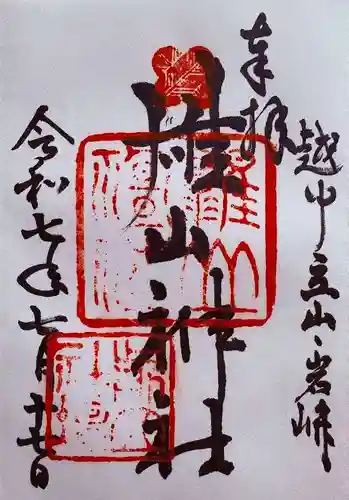 奉拝
越中立山、岩峅
雄山神社
令和七年七月十七日